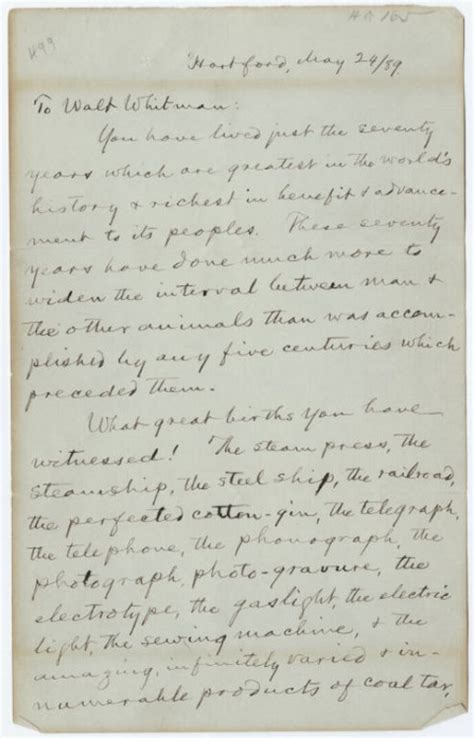 H99
HA 165
Hartford, May 24/89.
To Walt Whitman:
You have lived just the seventy
years which are greatest in the world's
history & richest in benefit & advance-
ment to its peoples. These seventy
years have done much more to
widen the interval between man &
the other animals than was accom-
plished by any five centuries which
preceded them.
What great births you have
witnessed! The steam press, the
steamship, the steel ship, the railroad,
the perfected cotton-gin, the telegraph,
the telephone, the phonograph, the
photograph, photo-gravure, the
electrotype, the gaslight, the electric
light, the sewing machine, & the
amazing, infinitely varied & in-
numerable products of coal tar,